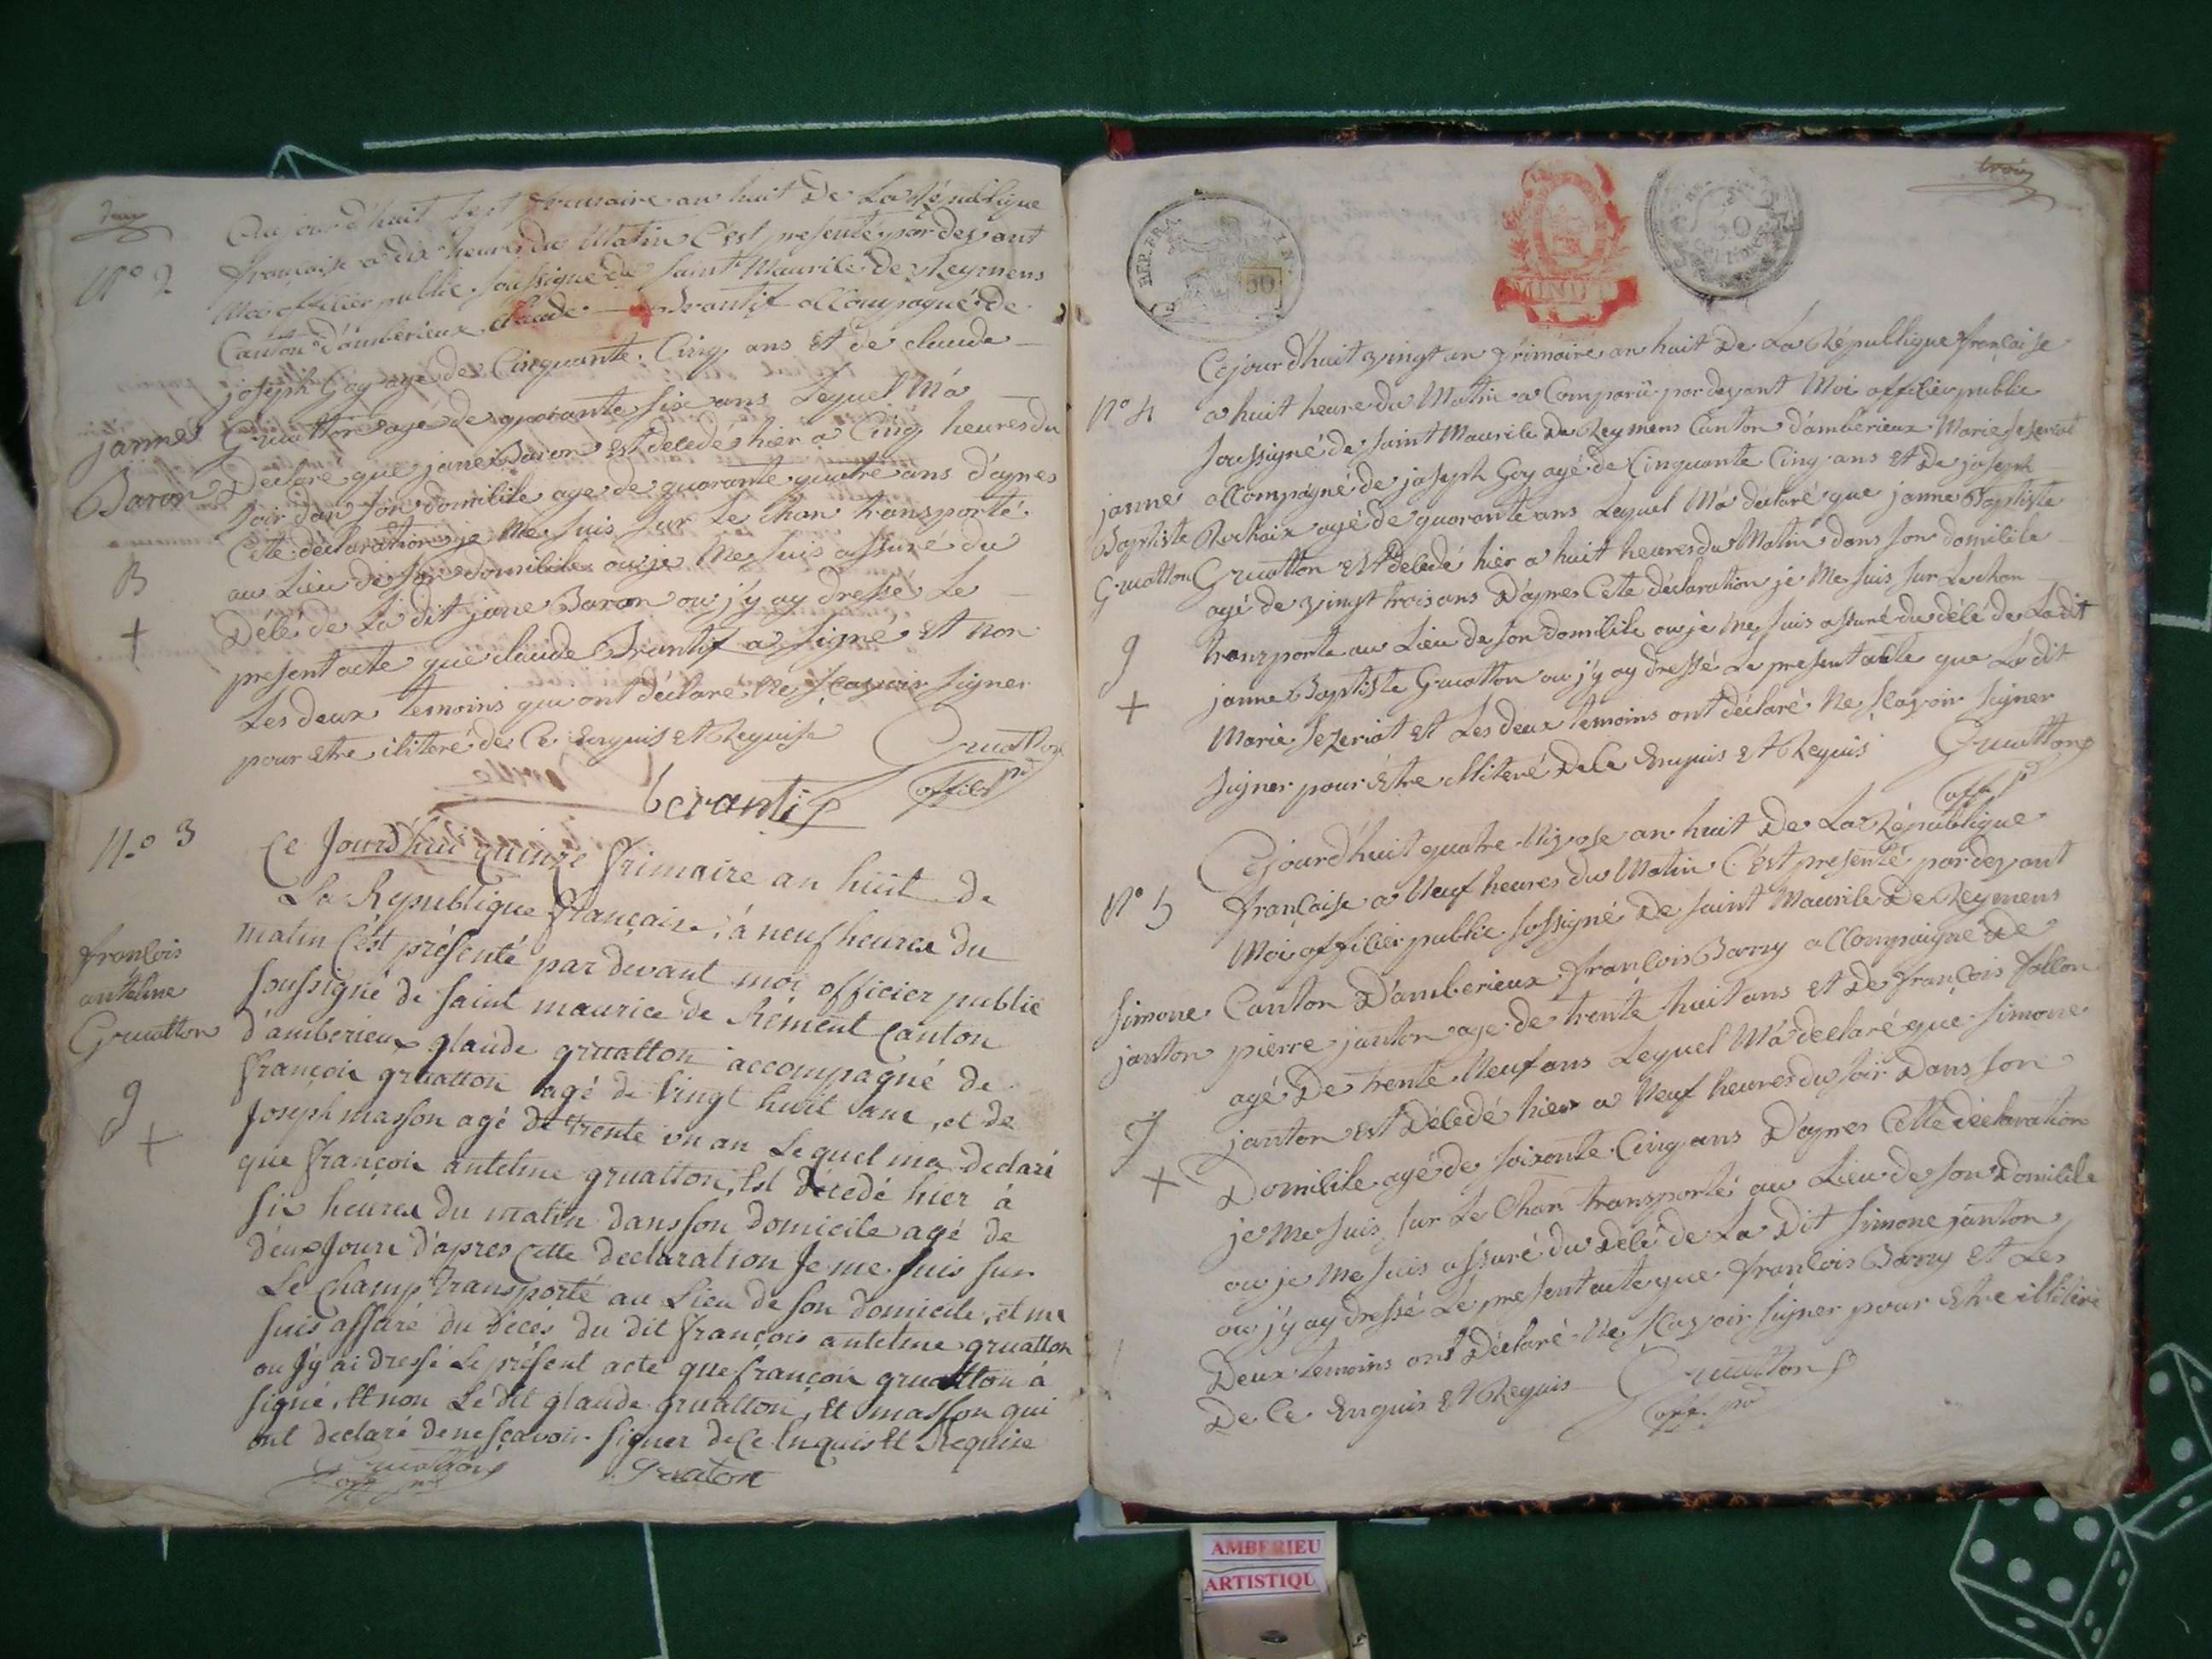 deux
N° 2
Aujourdhuit sept frimaire an huit De La République
française a dix heures du Matin C'est presenté par devant
Moi officier public soussigné de saint Maurice de Reymens
Canton d'amberieux claude Brantif accompagné de
joseph Goy agé de Cinquante Cinq ans Et de claude
Gruatton agé de quarante six ans Lequel M'a
janne
Baron
B
+
Déclaré que jane Baron Est décedé hier a Cinq heures du
soir dan son domicile age de quarante quatre ans d'apres
Cete déclaration je Me suis sur Le chan transporté
au Lieu de son domicile ou je Me suis assuré du
Décé de La dit jane Baron ou j'y ay dressé Le
present acte que claude Brantif a signé Et non
Les deux temoins qui ont déclaré Ne scavoir signer
pour Etre iliteré de Ce Enquis Et Requise
Gruatton
offici pu
berantif
N.° 3
Ce Jourd'hui quinze frimaire an huit de
La Republique française, à neuf heures du
matin c'est présenté par devant moi officier public
soussigné de saint maurice de Rément Canton
d'amberieux glaude gruatton accompagné de
françois
antelme
Gruatton
g
+
françois gruatton agé de vingt huit ans, et de
Joseph masson agé de trente un an Lequel ma declaré
que françois antelme gruatton, Est décedé hier à
six heures du matin dans son domicile agé de
deux Jours d'apres cette declaration Je me suis sur
Le Champ transporté au Lieu de son domicile, et me
suis assuré du décés du dit françois antelme gruatton
ou J'y ai dressé Le présent acte que françois gruatton à
signé, Et non Le dit glaude gruatton, Et masson qui
ont declaré de ne scavoir signer de Ce Enquis Et Requise
Gruatton
off pu
gruaton
trois
REP. FRA
AIN
50
MINUTE
50
N° 4
Cejourdhuit vingt un frimaire an huit De La République française
a huit heure du Matin a Comparü par devant Moi officier public
soussigné de saint Maurice De Reymens Canton d'amberieux Marie Sezeriat
janne
Baptiste
Gruatton
g
+
accompagné de joseph Goy agé de Cinquante Cinq ans Et De joseph
Rochaix agé de quarante ans Lequel M'a déclaré que janne Baptiste
Gruatton Est décedé hier a huit heures du Matin dans son domicile
agé de vingt trois ans D'apres Cete déclaration je Me suis sur Le chan
transporte au Lieu de son domicile ou je me suis assuré du décé de La dit
janne Baptiste Gruatton ou j'y ay dressé Le present acte que La dit
Marie Sezeriat Et Les deux temoins ont déclaré Ne scavoir signer
signer pour Être illiteré De Ce Enquis Et Requis
Gruatton
off. p
N° 5
Cejourdhuit quatre Nivose an huit De La République
française a Neuf heures du Matin C'est presenté par devant
Moi officier public sossigné De saint Maurice De Reymens
simone
janton
J
+
Canton D'amberieux françois Barry accompaigné De
pierre janton age de trente huit ans et De françois follon
agé De trente Neuf ans Lequel M'a declaré que simone
janton Est Décédé hier a Neuf heures du soir Dans son
Domicile agé de soixante Cinq ans D'apres Cette déclaration
je Me suis sur Le Chan transporté au Lieu de son Domicile
ou je Me suis assuré du Décé de La Dit simone janton
ou j'y ay dressé Le present acte que françois Barry Et Les
Deux temoins ont Déclaré Ne scavoir signer pour Etre illiteré
De Ce Enquis Et Requis
Gruatton
off. pu
AMBERIEU
ARTISTIQU